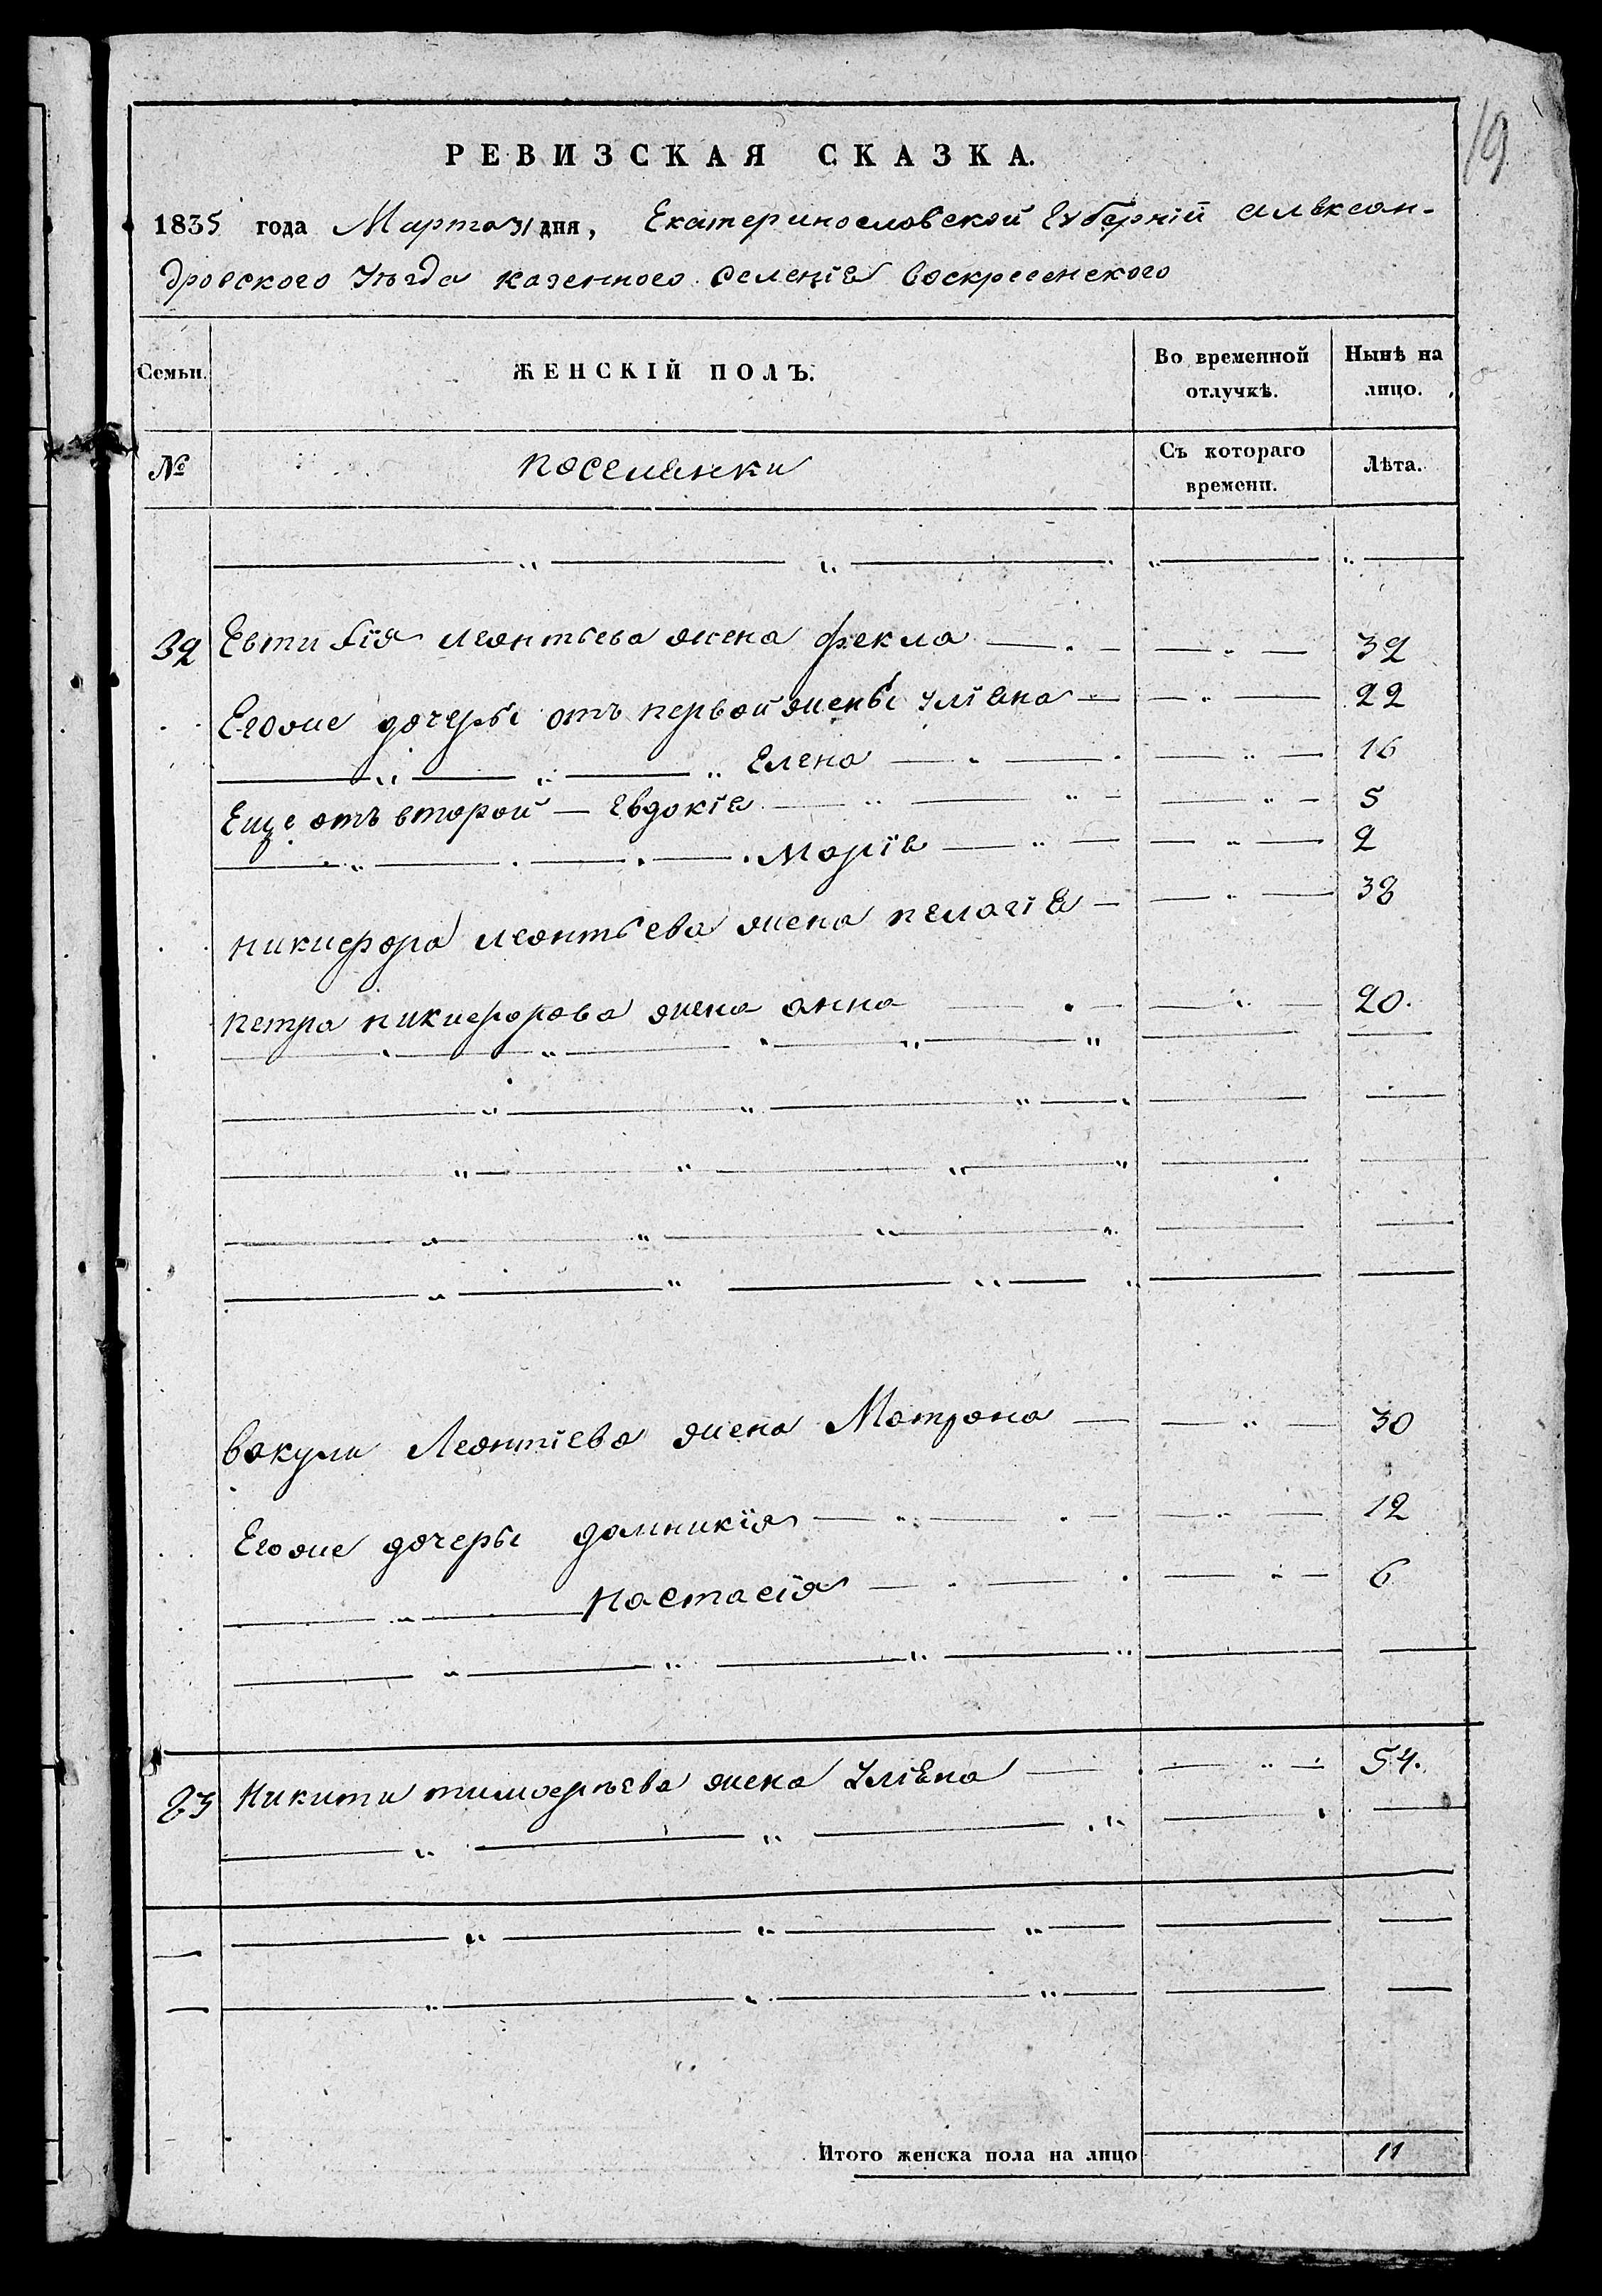 19
РЕВИЗСКАЯ СКАЗКА.
1835 года Марта 31 дня, Екатеринославской Губерніи Алексан-
дровского Уезда казенного селенія Воскресенского
Семьи. ЖЕНСКІЙ ПОЛЪ. Во временной отлучкѣ. Нынѣ на лицо.
№ поселянки Съ котораго времени. Лѣта.
32 Евтифія леонтьева жена фекла 32
Егоже дочеры отъ первой жены Уліяна 22
Елена 16
Еще отъ второй — Евдокія 5
Марія 2
никифора леонтьева жена пелагія 38
петра никифорова жена анна 20.
вакули Леонтіева жена Матрона 30
Егоже дочеры домникія 12
настасія 6
Никити тимофѣева жена Уліяна 54.
Итого женска пола на лицо 11